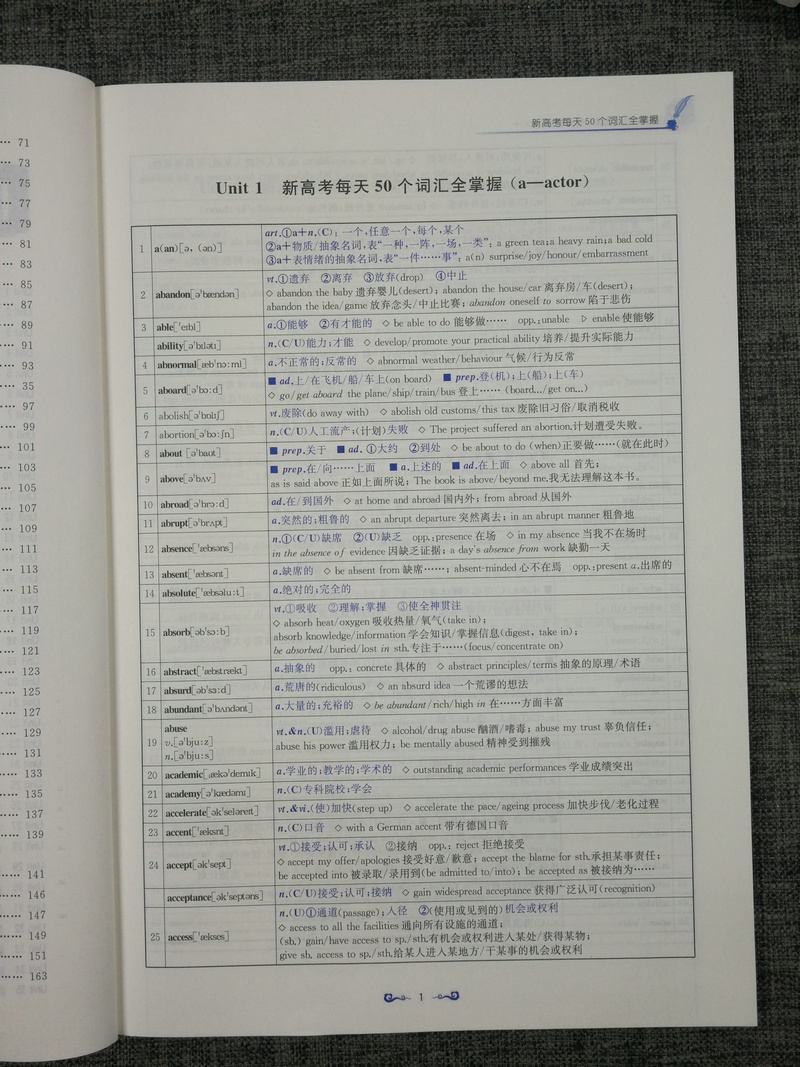 71
73
75
77
79
81
83
85
87
89
91
93
35
97
99
101
103
105
107
109
111
113
115
117
119
121
123
125
127
129
131
133
135
137
139
141
146
147
149
151
163
新高考每天50个词汇全掌握
Unit 1 新高考每天50个词汇全掌握(a—actor)
1 a(an)[ə, (ən)]
art.①a+n.(C):一个,任意一个,每个,某个
②a+物质/抽象名词,表“一种,一阵,一场,一类”: a green tea;a heavy rain;a bad cold
③a+表情绪的抽象名词,表“一件……事”: a(n) surprise/joy/honour/embarrassment
2 abandon[ə'bændən]
vt.①遗弃 ②离弃 ③放弃(drop) ④中止
◇ abandon the baby 遗弃婴儿(desert); abandon the house/car 离弃房/车(desert);
abandon the idea/game 放弃念头/中止比赛; abandon oneself to sorrow 陷于悲伤
3 able['eɪbl] a.①能够 ②有才能的 ◇ be able to do 能够做…… opp.:unable ▷ enable 使能够
ability[ə'bɪlətɪ] n.(C/U)能力;才能 ◇ develop/promote your practical ability 培养/提升实际能力
4 abnormal[æb'nɔ:ml] a.不正常的;反常的 ◇ abnormal weather/behaviour 气候/行为反常
5 aboard[ə'bɔ:d]
■ ad.上/在飞机/船/车上(on board) ■ prep.登(机);上(船);上(车)
◇ go/get aboard the plane/ship/train/bus 登上…… (board.../get on...)
6 abolish[ə'bɒlɪʃ] vt.废除(do away with) ◇ abolish old customs/this tax 废除旧习俗/取消税收
7 abortion[ə'bɔ:ʃn] n.(C/U)人工流产;(计划)失败 ◇ The project suffered an abortion.计划遭受失败。
8 about [ə'baʊt] ■ prep.关于 ■ ad. ①大约 ②到处 ◇ be about to do (when)正要做……(就在此时)
9 above[ə'bʌv]
■ prep.在/向……上面 ■ a.上述的 ■ ad.在上面 ◇ above all 首先;
as is said above 正如上面所说; The book is above/beyond me.我无法理解这本书。
10 abroad[ə'brɔ:d] ad.在/到国外 ◇ at home and abroad 国内外; from abroad 从国外
11 abrupt[ə'brʌpt] a.突然的;粗鲁的 ◇ an abrupt departure 突然离去; in an abrupt manner 粗鲁地
12 absence['æbsəns]
n.①(C/U)缺席 ②(U)缺乏 opp.:presence 在场 ◇ in my absence 当我不在场时
in the absence of evidence 因缺乏证据; a day's absence from work 缺勤一天
13 absent['æbsənt] a.缺席的 ◇ be absent from 缺席……; absent-minded 心不在焉 opp.:present a.出席的
14 absolute['æbsəlu:t] a.绝对的;完全的
15 absorb[əb'sɔ:b]
vt.①吸收 ②理解;掌握 ③使全神贯注
◇ absorb heat/oxygen 吸收热量/氧气(take in);
absorb knowledge/information 学会知识/掌握信息(digest, take in);
be absorbed/buried/lost in sth.专注于……(focus/concentrate on)
16 abstract['æbstrækt] a.抽象的 opp.: concrete 具体的 ◇ abstract principles/terms 抽象的原理/术语
17 absurd[əb'sɜ:d] a.荒唐的(ridiculous) ◇ an absurd idea 一个荒谬的想法
18 abundant[ə'bʌndənt] a.大量的;充裕的 ◇ be abundant/rich/high in 在……方面丰富
19 abuse
v.[ə'bju:z]
n.[ə'bju:s]
vt.&n.(U)滥用;虐待 ◇ alcohol/drug abuse 酗酒/嗜毒; abuse my trust 辜负信任;
abuse his power 滥用权力; be mentally abused 精神受到摧残
20 academic[ˌækə'demɪk] a.学业的;教学的;学术的 ◇ outstanding academic performances 学业成绩突出
21 academy[ə'kædəmɪ] n.(C)专科院校;学会
22 accelerate[ək'seləreɪt] vt.&vi.(使)加快(step up) ◇ accelerate the pace/ageing process 加快步伐/老化过程
23 accent['æksnt] n.(C)口音 ◇ with a German accent 带有德国口音
24 accept[ək'sept]
vt.①接受;认可;承认 ②接纳 opp.: reject 拒绝接受
◇ accept my offer/apologies 接受好意/歉意; accept the blame for sth.承担某事责任;
be accepted into 被录取/录用到(be admitted to/into); be accepted as 被接纳为……
acceptance[ək'septəns] n.(C/U)接受;认可;接纳 ◇ gain widespread acceptance 获得广泛认可(recognition)
25 access['ækses]
n.(U)①通道(passage);入径 ②(使用或见到的)机会或权利
◇ access to all the facilities 通向所有设施的通道;
(sb.) gain/have access to sp./sth.有机会或权利进入某处/获得某物;
give sb. access to sp./sth.给某人进入某地方/干某事的机会或权利
1